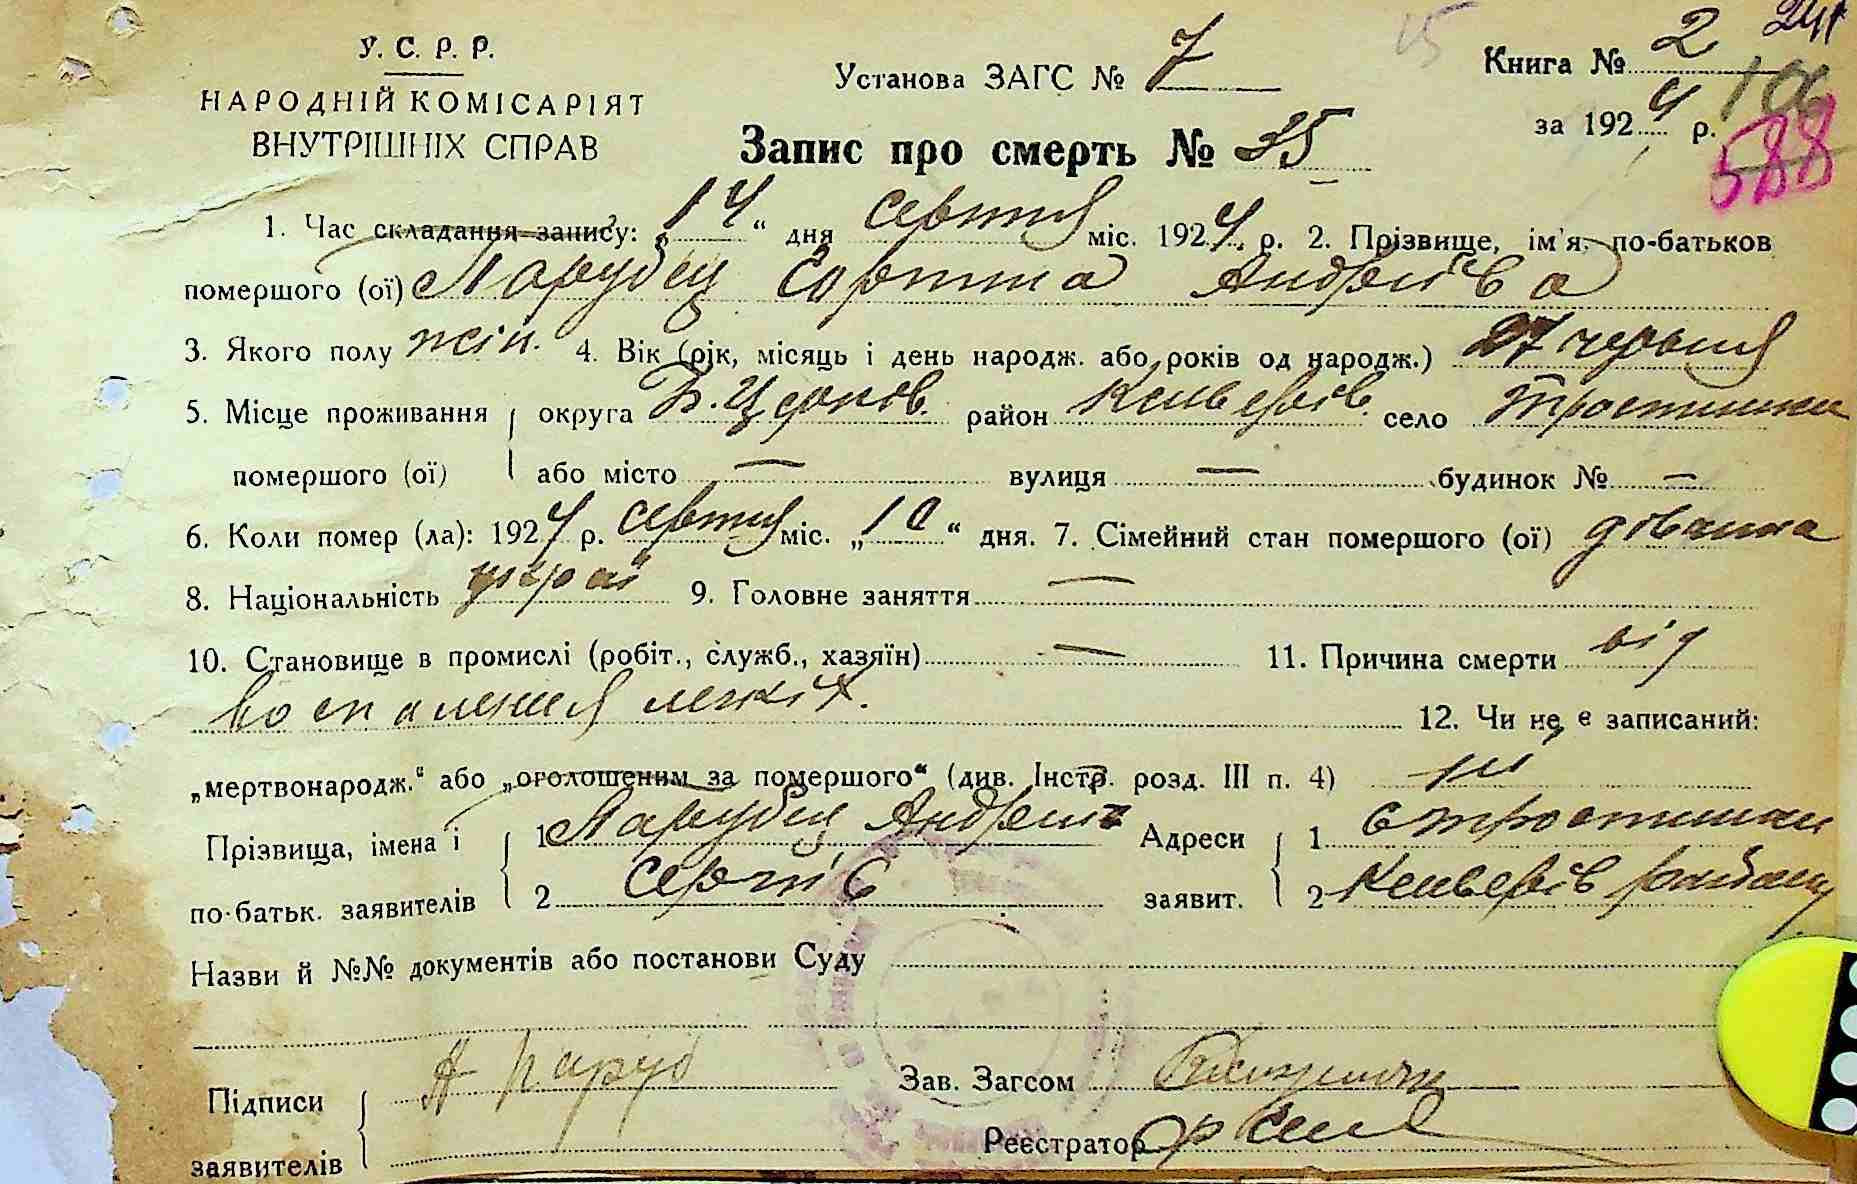 У. С. Р. Р.
НАРОДНІЙ КОМІСАРІЯТ
ВНУТРІШНІХ СПРАВ
Установа ЗАГС № 7
Книга № 2
за 1924 р.
106
588
Запис про смерть № 35
1. Час складання запису: „14“ дня серпня міс. 1924 р. 2. Прізвище, ім'я, по-батьков
помершого (ої) Парубец Андрієва
3. Якого полу жін. 4. Вік (рік, місяць і день народж. або років од народж.) 27 червня
5. Місце проживання округа Б. Церков. район село Тростинка
помершого (ої) або місто — вулиця — будинок № —
6. Коли помер (ла): 1924 р. серпня міс. „10“ дня. 7. Сімейний стан помершого (ої) дівчина
8. Національність украї 9. Головне заняття —
10. Становище в промислі (робіт., служб., хазяїн) — 11. Причина смерти від
воспаления легких.
12. Чи не є записаний:
„мертвонародж.“ або „оголошеним за помершого“ (див. Інстр. розд. III п. 4) ні
Прізвища, імена і 1 Парубец Андрей Адреси 1 с Тростинка
по-батьк. заявителів 2 Сергіїв заявит. 2 району
Назви й №№ документів або постанови Суду
Підписи А Паруб Зав. Загсом
заявителів Реєстратор